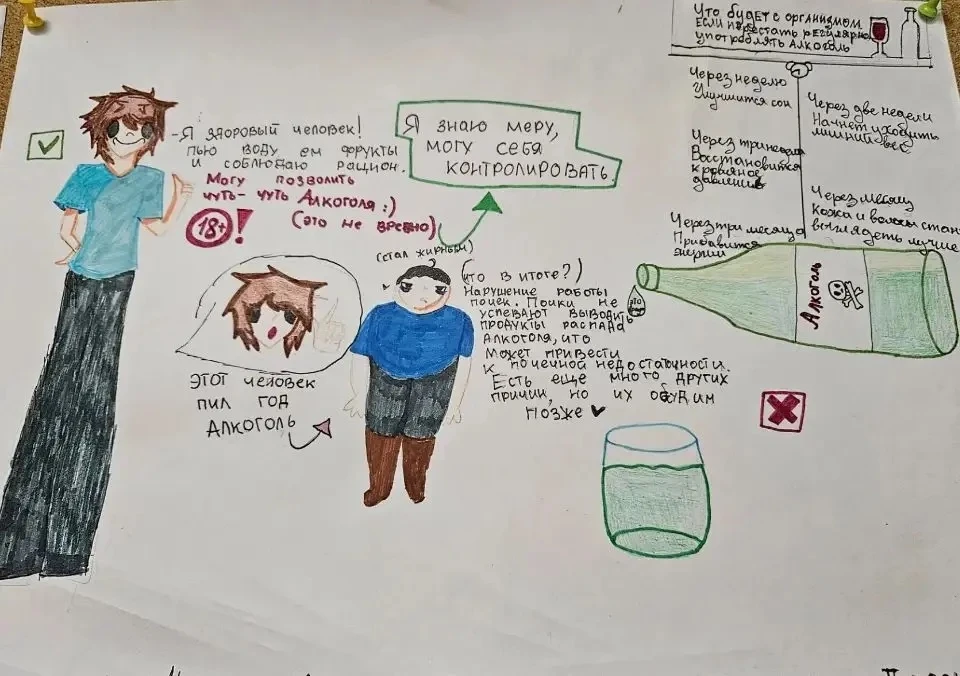 -Я здоровый человек!
пью воду ем фрукты
и соблюдаю рацион.
Могу позволить
чуть-чуть Алкоголя :)
18+! (это не вредно)
Я знаю меру,
могу себя
контролировать.
Что будет с организмом
если перестать регулярно
употреблять Алкоголь
Через неделю
Улучшится сон
Через две недели
Начнет уходить
лишний вес
Через три недели
Восстановится
кровяное
давление
Через месяц
Кожа и волосы
выглядеть лучше
Через три месяца
Прибавится
энергии
(стал жирный)
(что в итоге?)
Нарушение работы
почек. Почки не
успевают выводить
продукты распада
Алкоголя, что
может привести
к почечной недостаточности.
Есть еще много других
причин, но их обсудим
позже
Этот человек
пил год
Алкоголь
Алкоголь